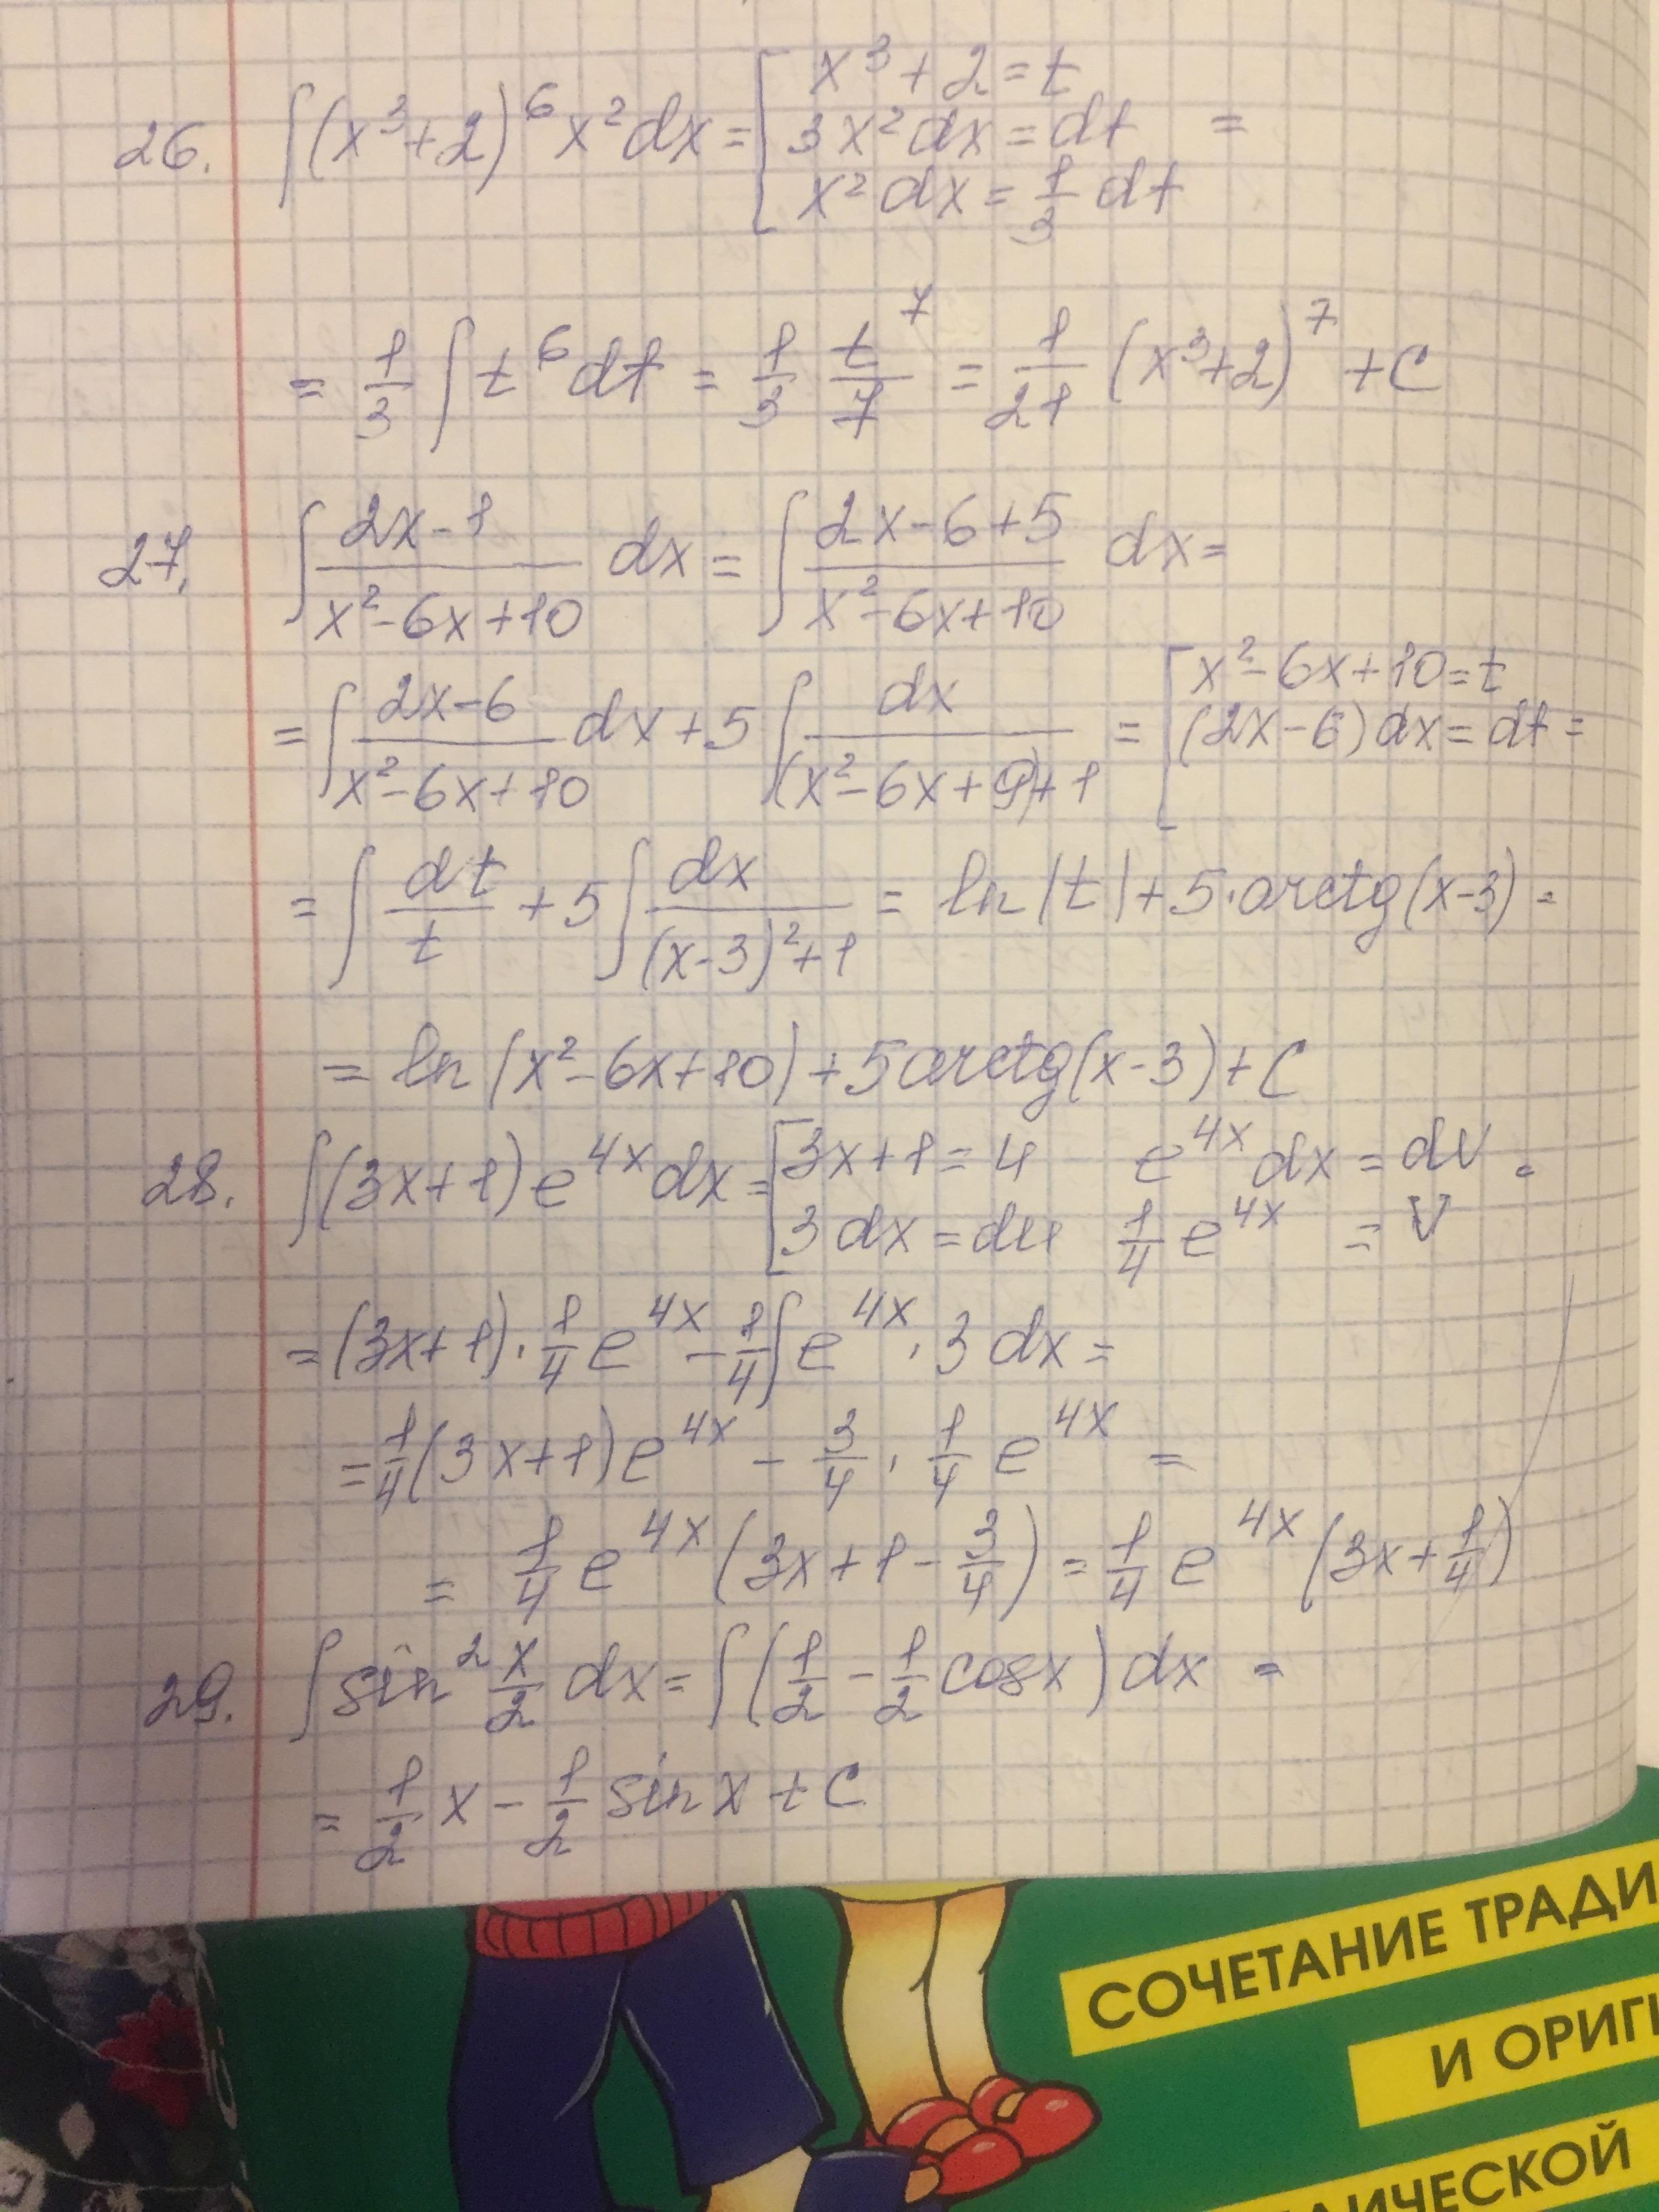 26. ∫(x³+2)⁶x²dx = [x³+2=t
3x²dx=dt =
x²dx=1/3 dt
= 1/3 ∫t⁶dt = 1/3 t⁷/7 = 1/21 (x³+2)⁷+C
27. ∫(2x-1)/(x²-6x+10) dx = ∫(2x-6+5)/(x²-6x+10) dx =
= ∫(2x-6)/(x²-6x+10) dx + 5∫dx/((x²-6x+9)+1) = [x²-6x+10=t
(2x-6)dx=dt =
= ∫dt/t + 5∫dx/((x-3)²+1) = ln|t|+5·arctg(x-3) =
= ln|x²-6x+10|+5arctg(x-3)+C
28. ∫(3x+1)e⁴ˣdx = [3x+1=u e⁴ˣdx=dV =
3dx=du 1/4 e⁴ˣ = V
= (3x+1)·1/4 e⁴ˣ - 1/4∫e⁴ˣ·3dx =
= 1/4(3x+1)e⁴ˣ - 3/4·1/4 e⁴ˣ =
= 1/4 e⁴ˣ(3x+1-3/4) = 1/4 e⁴ˣ(3x+1/4)
29. ∫sin² x/2 dx = ∫(1/2 - 1/2 cosx)dx =
= 1/2 x - 1/2 sinx + C
СОЧЕТАНИЕ ТРАДИ
И ОРИГИ
ИЧЕСКОЙ